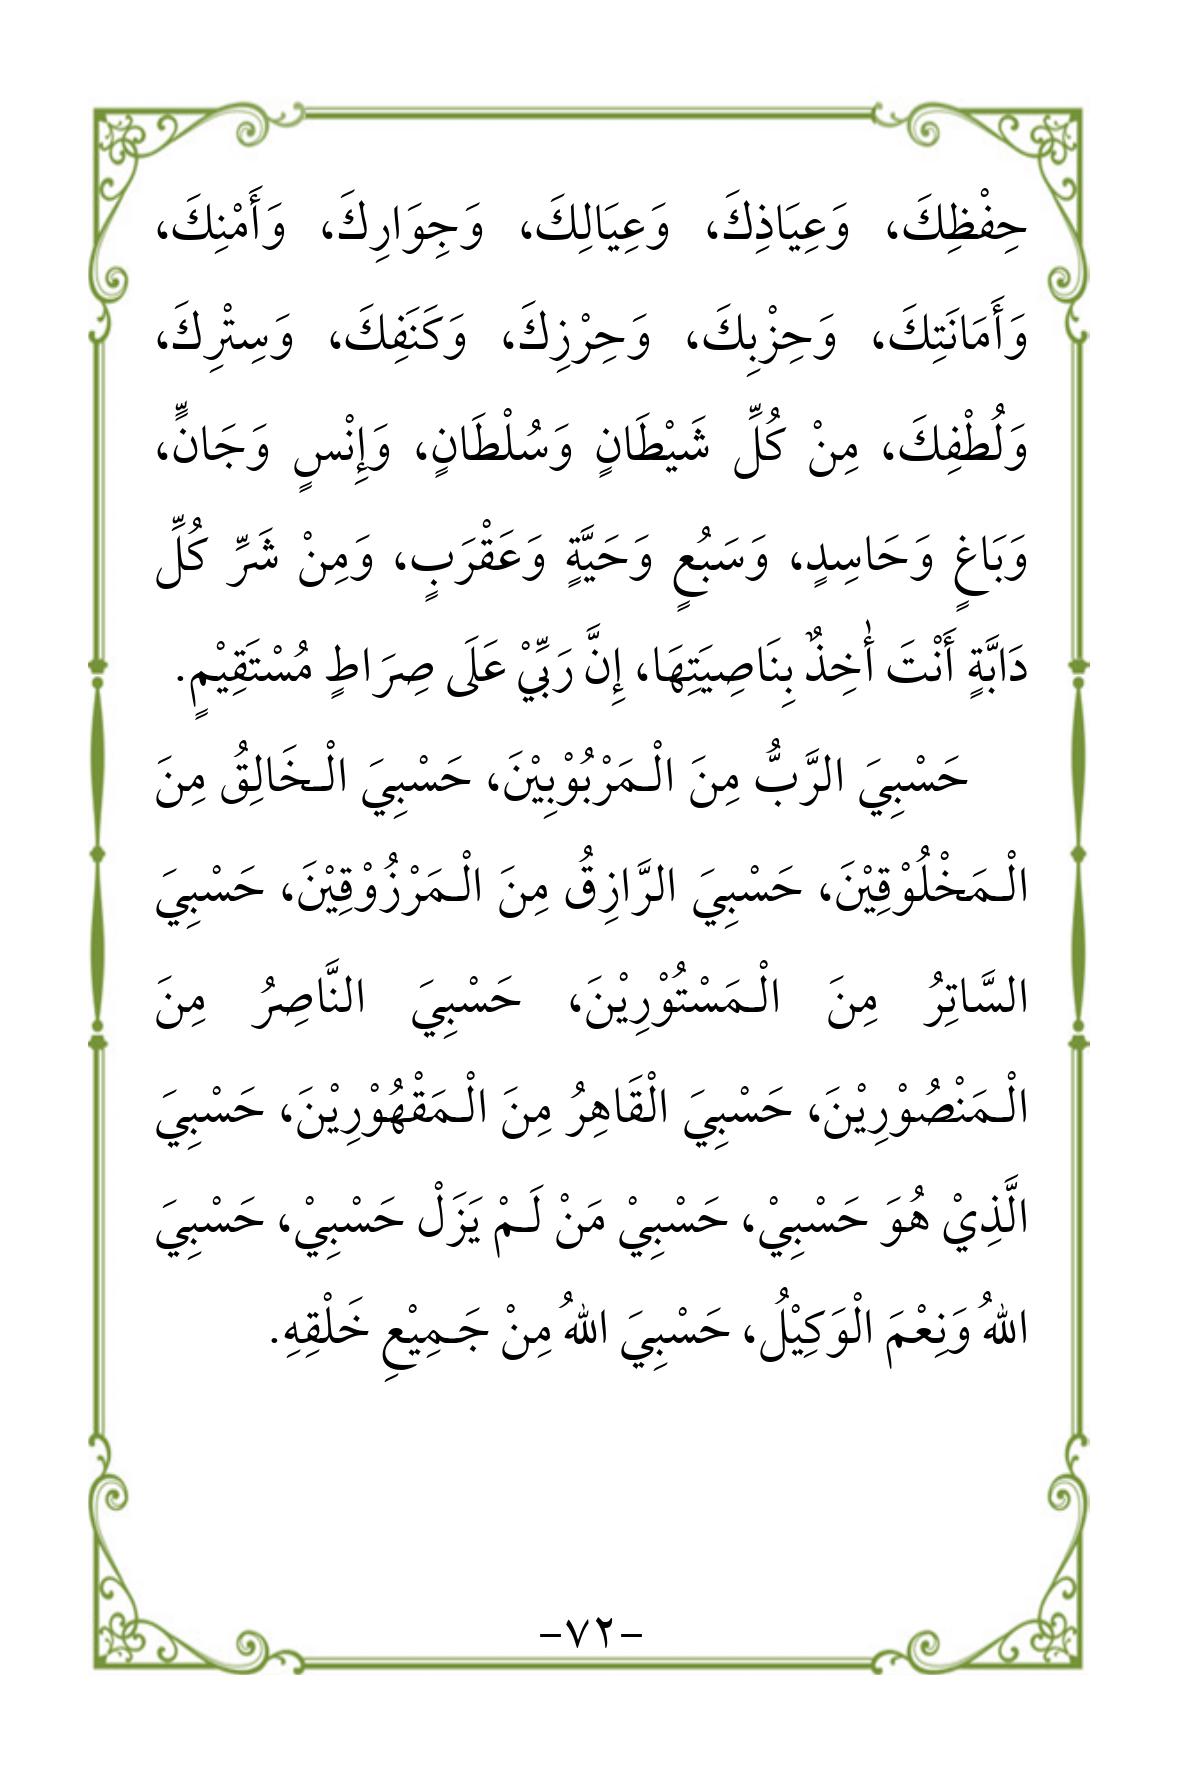 حِفْظِكَ، وَعِيَاذِكَ، وَعِيَالِكَ، وَجِوَارِكَ، وَأَمْنِكَ،
وَأَمَانَتِكَ، وَحِزْبِكَ، وَحِرْزِكَ، وَكَنَفِكَ، وَسِتْرِكَ،
وَلُطْفِكَ، مِنْ كُلِّ شَيْطَانٍ وَسُلْطَانٍ، وَإِنْسٍ وَجَانٍّ،
وَبَاغٍ وَحَاسِدٍ، وَسَبُعٍ وَحَيَّةٍ وَعَقْرَبٍ، وَمِنْ شَرِّ كُلِّ
دَابَّةٍ أَنْتَ أٰخِذٌ بِنَاصِيَتِهَا، إِنَّ رَبِّيْ عَلَى صِرَاطٍ مُسْتَقِيْمٍ.
حَسْبِيَ الرَّبُّ مِنَ الْـمَرْبُوْبِيْنَ، حَسْبِيَ الْـخَالِقُ مِنَ
الْـمَخْلُوْقِيْنَ، حَسْبِيَ الرَّازِقُ مِنَ الْـمَرْزُوْقِيْنَ، حَسْبِيَ
السَّاتِرُ مِنَ الْـمَسْتُوْرِيْنَ، حَسْبِيَ النَّاصِرُ مِنَ
الْـمَنْصُوْرِيْنَ، حَسْبِيَ الْقَاهِرُ مِنَ الْـمَقْهُوْرِيْنَ، حَسْبِيَ
الَّذِيْ هُوَ حَسْبِيْ، حَسْبِيْ مَنْ لَـمْ يَزَلْ حَسْبِيْ، حَسْبِيَ
اللهُ وَنِعْمَ الْوَكِيْلُ، حَسْبِيَ اللهُ مِنْ جَـمِيْعِ خَلْقِهِ.
-٧٢-